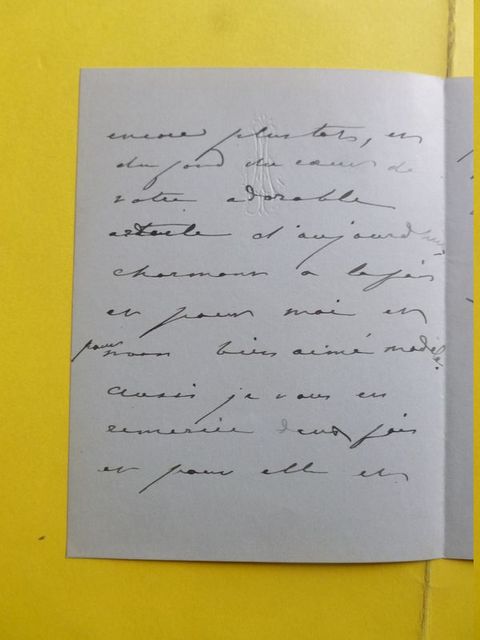 encore plus tôt, et
du fond du cœur de
votre adorable
article d'aujourd'hui
charmant a la fois
et pour moi et
pour mon bien aimé modèle.
Aussi je vous en
remercie deux fois
et pour elle et